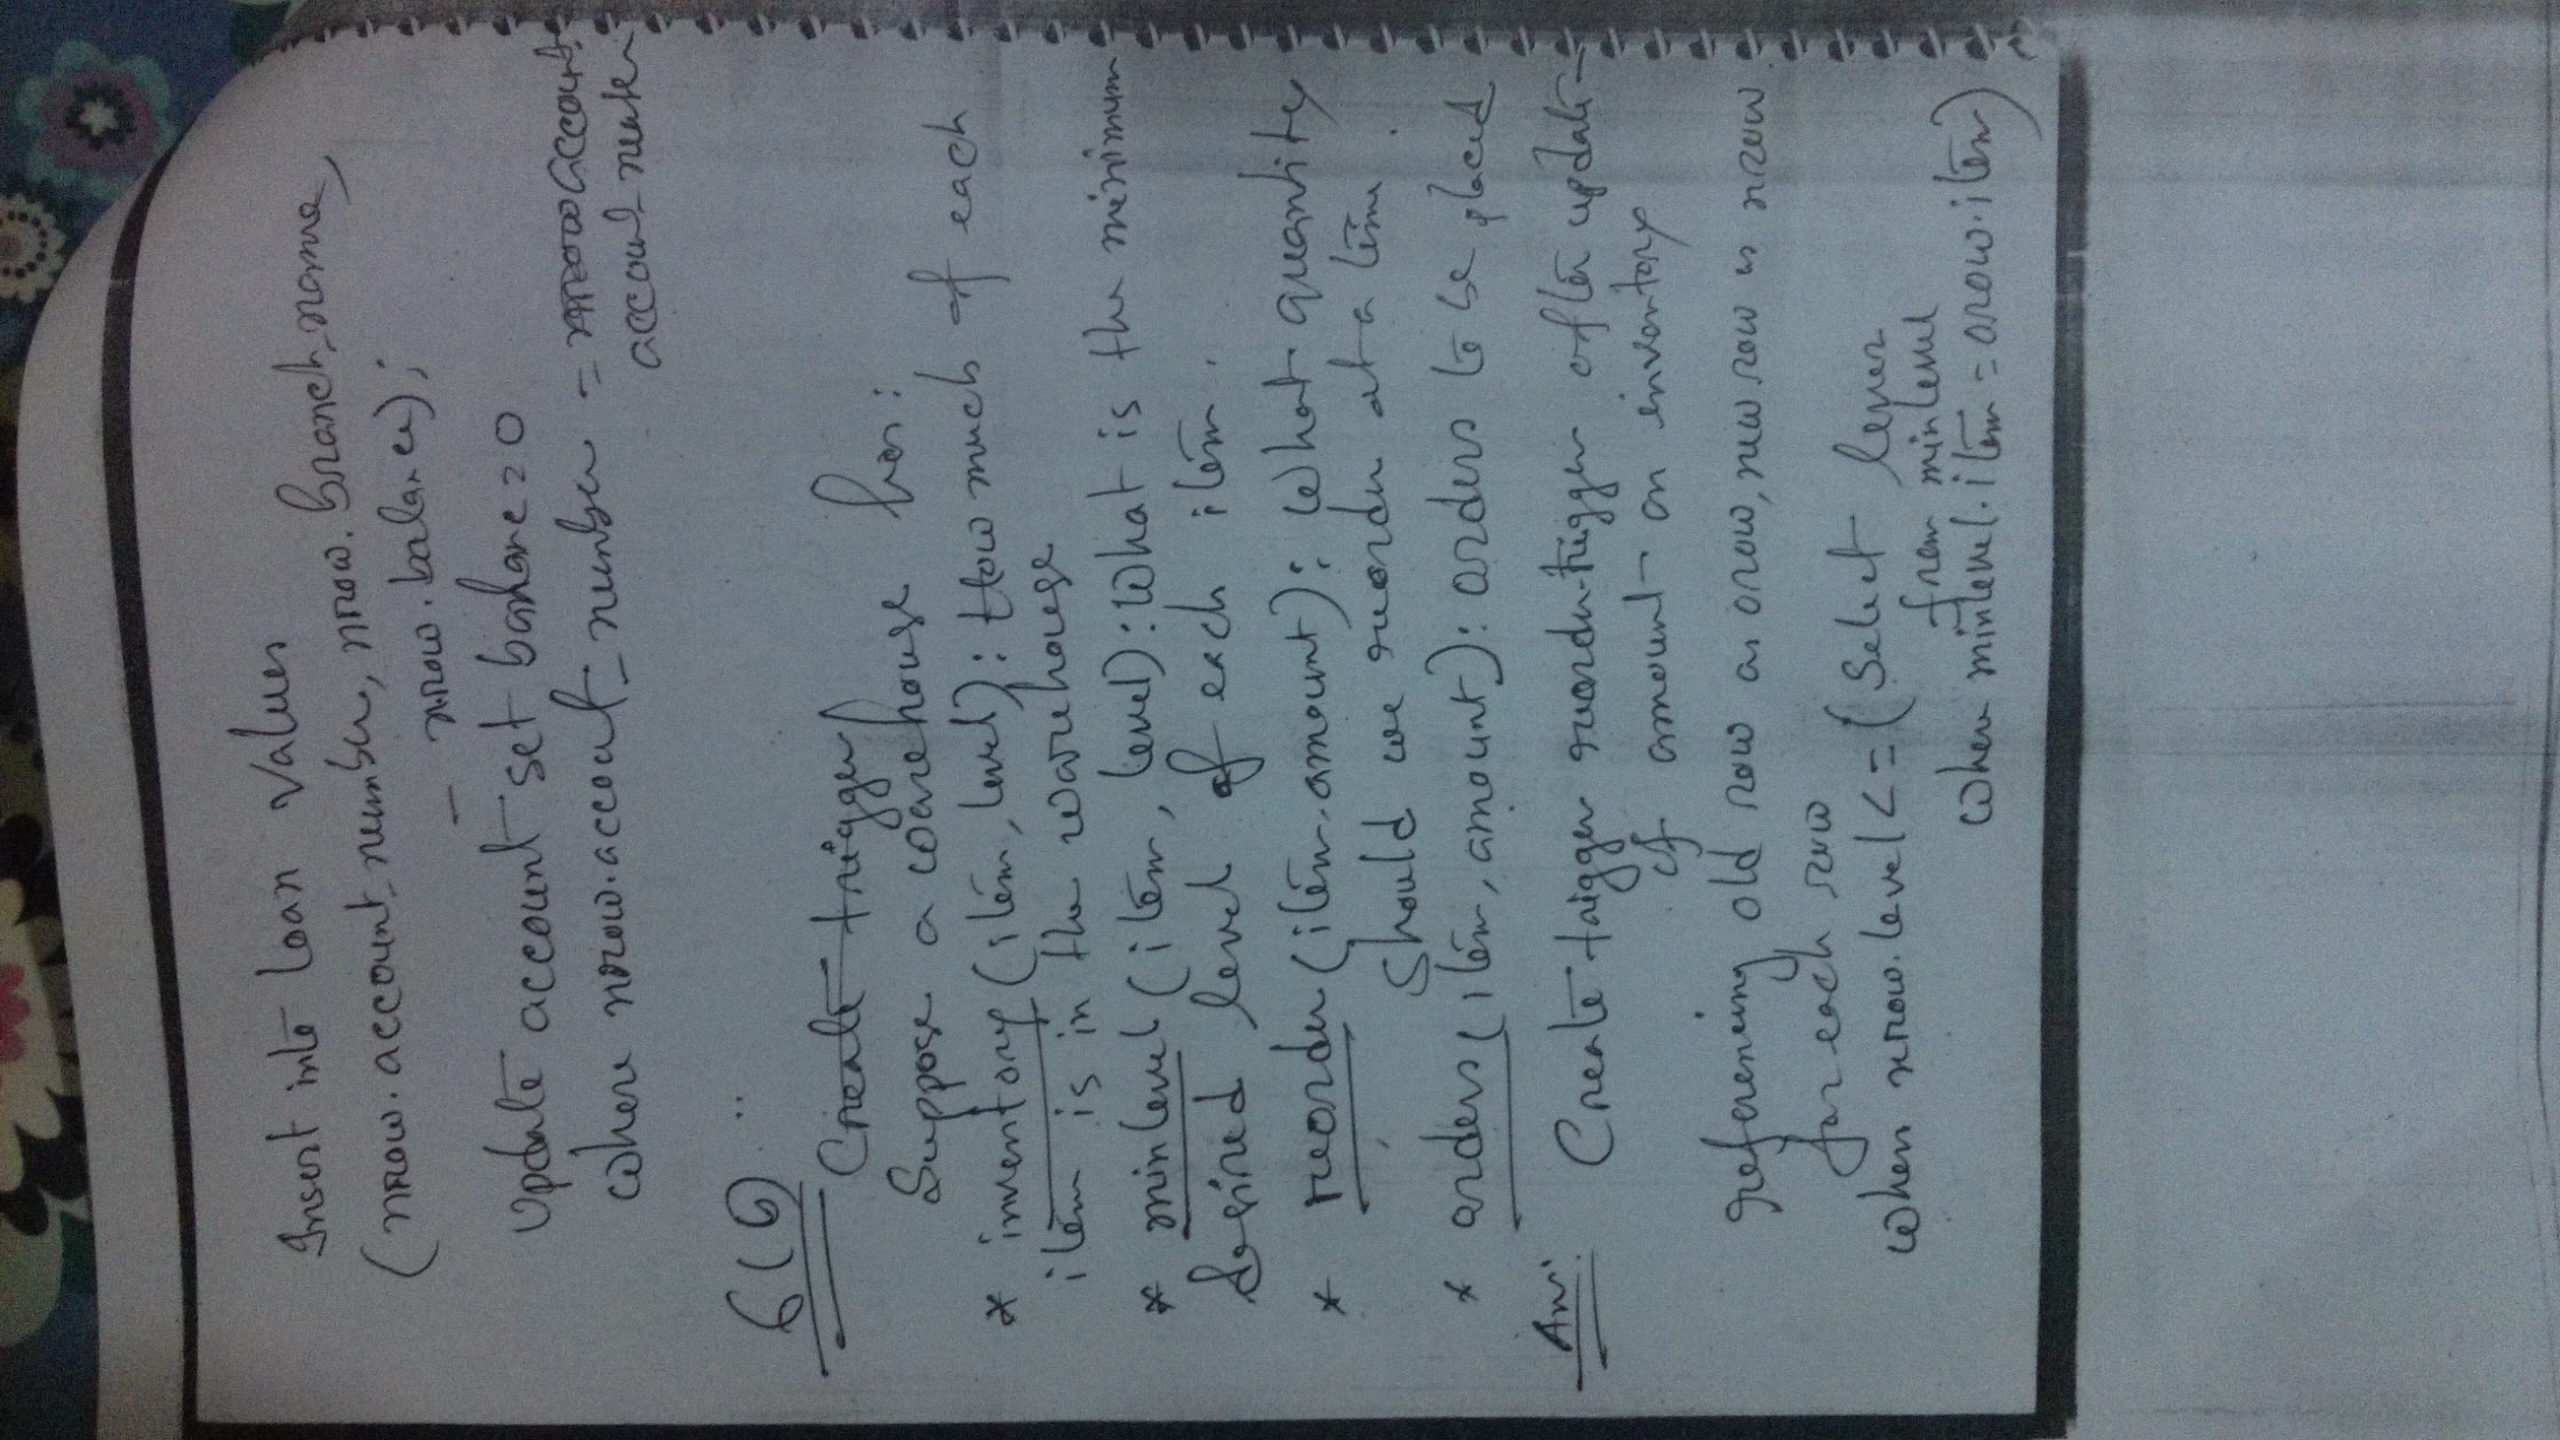 Insert into loan values
(nrow.account_number, nrow.branch_name,
- nrow.balance);
Update account set balance = 0
where nrow.account_number = account_number
6(b)
Create trigger
Suppose a warehouse has:
* inventory (item, level): How much of each
item is in the warehouse
* minlevel (item, level): What is the minimum
desired level of each item.
* reorder (item, amount): What quantity
should we reorder at a time.
* orders (item, amount): orders to be placed
Ans: Create trigger reorder-trigger after update
of amount on inventory
referencing old row as orow, new row as nrow
for each row
when nrow.level <= (select level
from minlevel
where minlevel.item = orow.item)